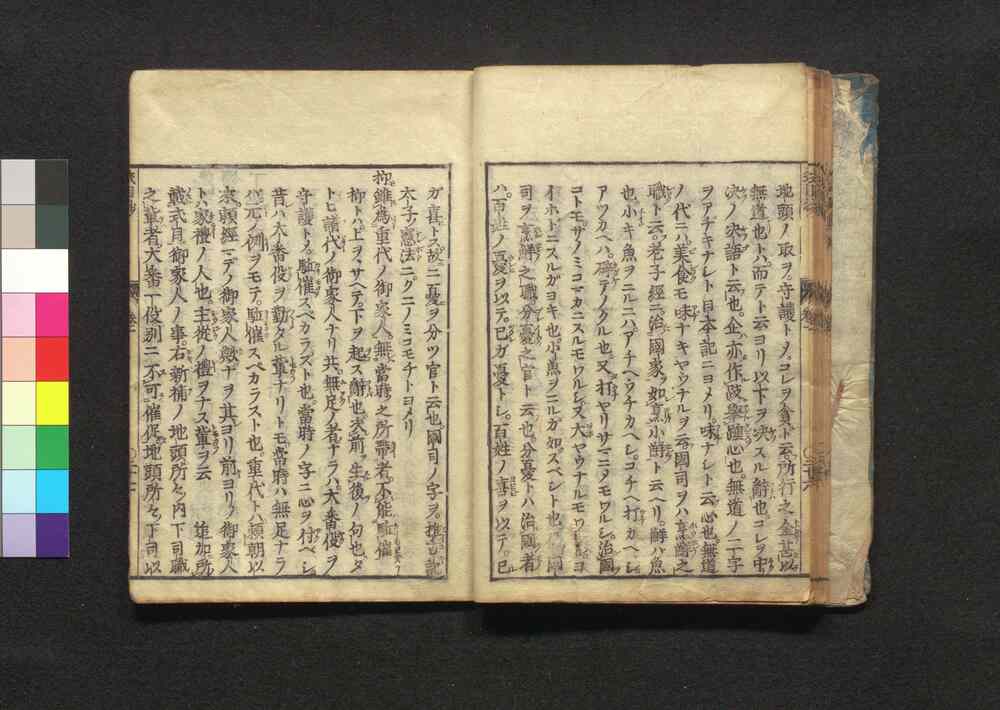 地頭ノ取ヲ守護トメ。コレヲ貪ト云所行之企甚以
無道也トハ而テト云ヨリ以下ヲ决スル辭也コレヲ中
决ノ决語ト云也。企亦作跂擧踵心也。無道ノ二字
ヲアヂキナシト日本記ニヨメリ味ナシト云心也無道
ノ代ニハ美食モ味ナキヤウナルヲ云國司ヲハ烹鮮之
職ト云。老子經ニ治國家ヲ如烹小鮮ト云ヘリ。鮮ハ魚
也。小キ魚ヲニルニハアチヘウチカヘシ。コチヘ打カヘシ
アツカヘハ。碎テノクル也又打ヤリサマニメモワルシ治國
コトモサノミコマカニスルモワルシ又大ヤウナルモワルシヨ
イホドニスルガヨキ也小魚ヲニルガ如スベシト也
司ヲ烹鮮之職分憂之官ト云也分憂トハ治國者
ハ。百姓ノ憂ヲ以テ。已ガ憂トシ。百姓ノ喜ヲ以テ。已
ガ喜トス故ニ憂ヲ分ツ官ト云也國司ノ字ヲ。
太子ノ憲法ニ。クニノミコモチトヨメリ
抑雖爲重代ノ御家人無當時之所帶者。不能驅催
抑トハ上ヲヽサヘテ。下ヲ起ス辭也次前。生後ノ句也。タ
トヒ譜代ノ御家人ナリ共無足ノ者ナラハ。大番役ヲ
守護トメ。驅催スベカラズト也。當時ノ字ニ心ヲ付ベシ
昔ハ大番役ヲ勤タル輩ナリトモ當時ハ無足ナラ
ハ。元ノ例ヲモテ。驅催スベカラスト也。重代トハ頼朝以
來頼經マデノ御家人數ナヲ其ヨリ前ヨリノ御家人
トハ家禮ノ人也。主從ノ禮ヲナス輩ヲ云 追加所
載式目御家人ノ事。右新補ノ地頭所々ノ内下司職
之輩者大番一役別ニ不可催促地頭所々ノ下司以